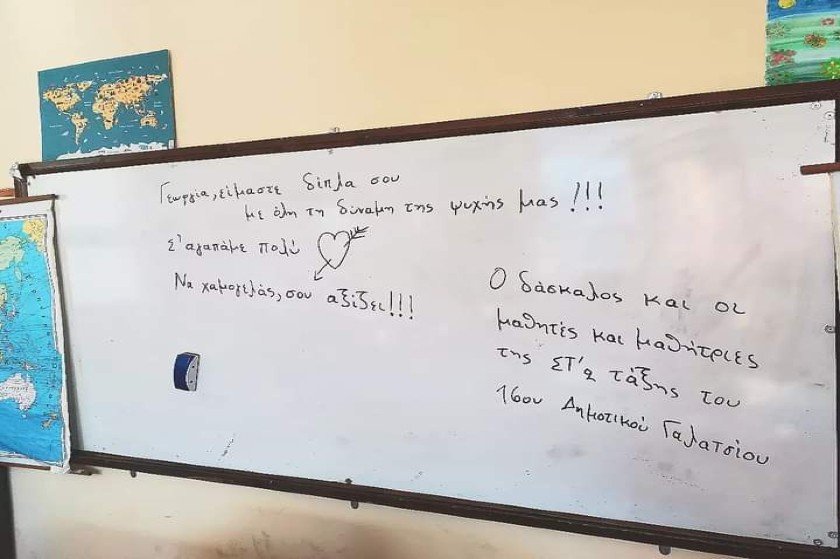 Γεωργία, είμαστε δίπλα σου
με όλη τη δύναμη της ψυχής μας!!!
Σ'αγαπάμε πολύ
Να χαμογελάς, σου αξίζει!!!
Ο δάσκαλος και οι
μαθητές και μαθήτριες
της ΣΤ'2 τάξης του
16ου Δημοτικού Γαλατσίου